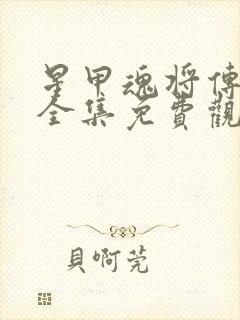 星甲魂将傳
全集免費觀
貝啊莞